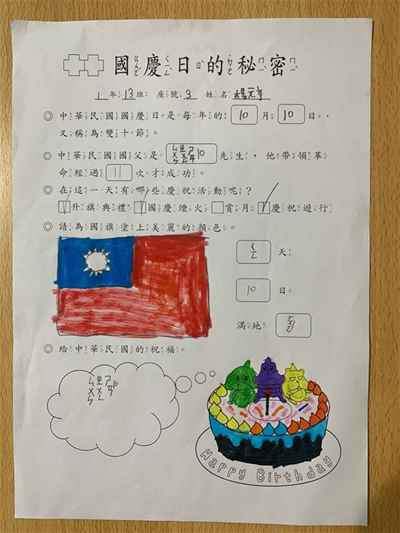 國慶日的秘密
1年13班 座號3 姓名
◎中華民國國慶日是每年的10月10日。
又稱為雙十節。
◎中華民國國父是先生，他帶領革
命經過11次才成功。
◎在這一天有哪些慶祝活動呢？
升旗典禮 國慶煙火 賞月 慶祝遊行
◎請為國旗塗上美麗的顏色。
天
10日
滿地
◎給中華民國的祝福。
Happy Birthday